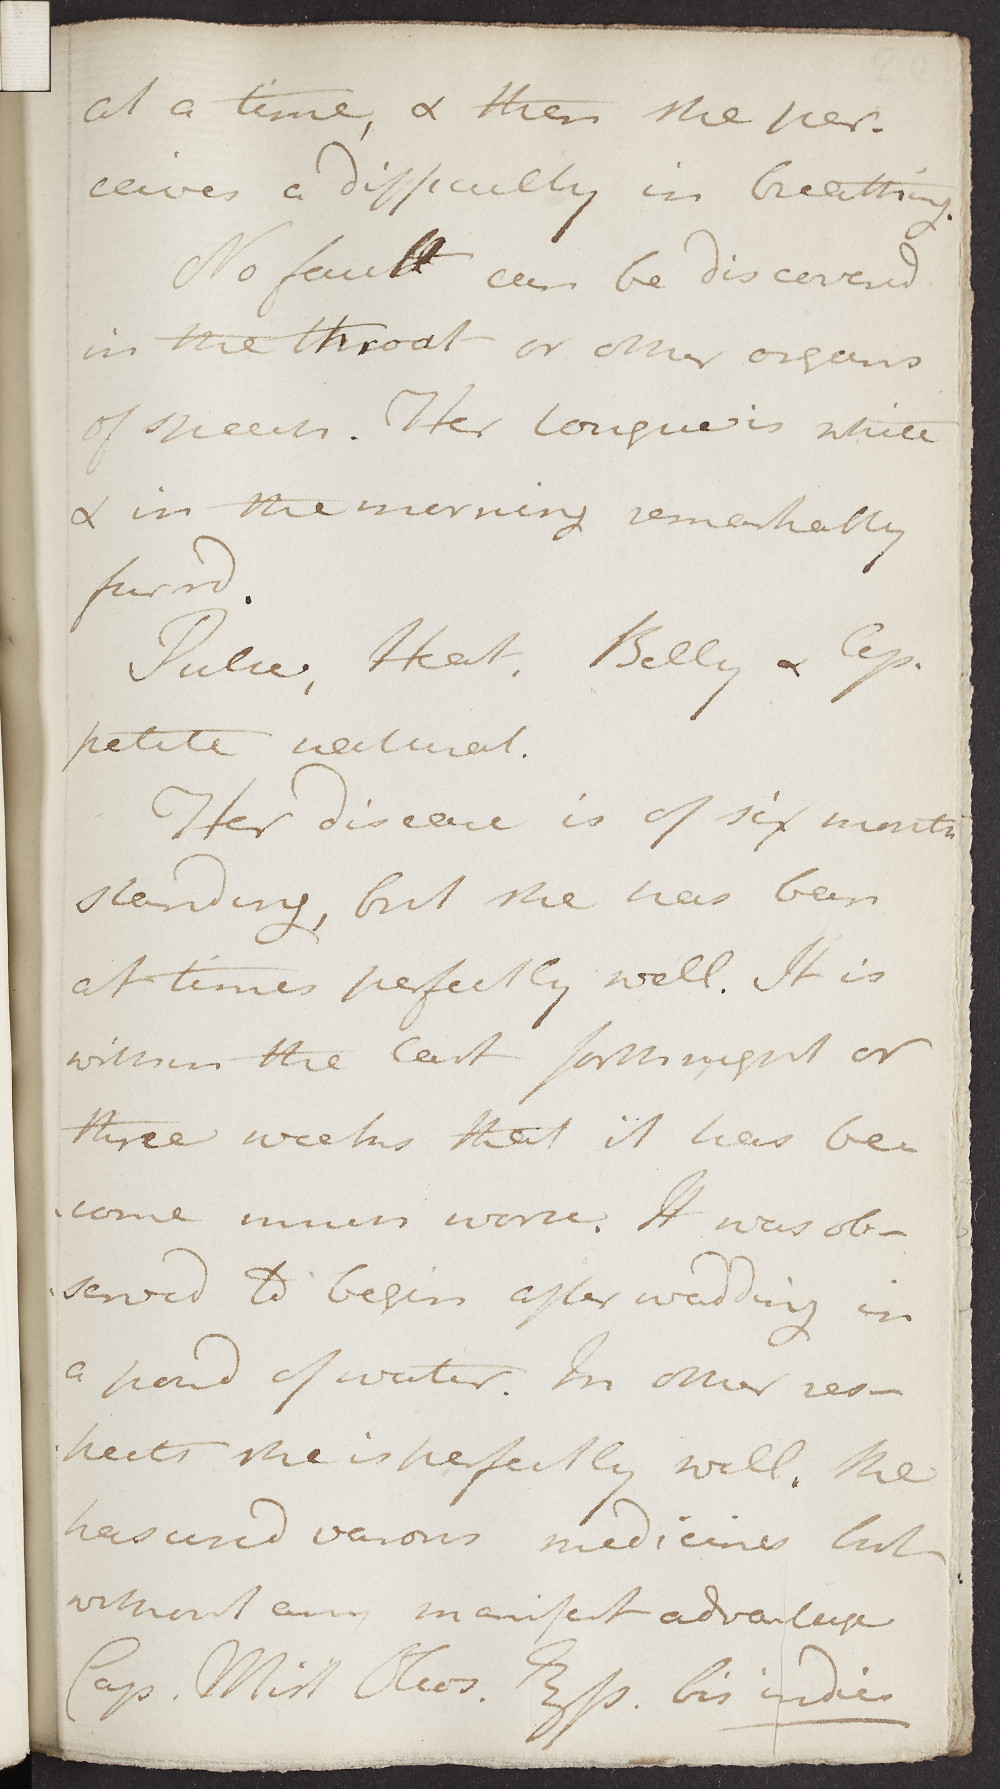 at a time, & then she per-
ceives a difficulty in breathing.
No fault can be discovered
in the throat or other organs
of speech. Her tongue is white
& in the morning remarkably
furrd.
Pulse, Heat, Belly & Ap-
petite natural.
Her disease is of six months
standing, but she has been
at times perfectly well. It is
within the last forthnight or
three weeks that it has be-
come much worse. It was ob-
served to begin after wadding in
a pond of water. In other res-
pects she is perfectly well. She
has used various medicines but
without any manifest advantage
Cap. Mist Oleos. ℥ſs. bis indies